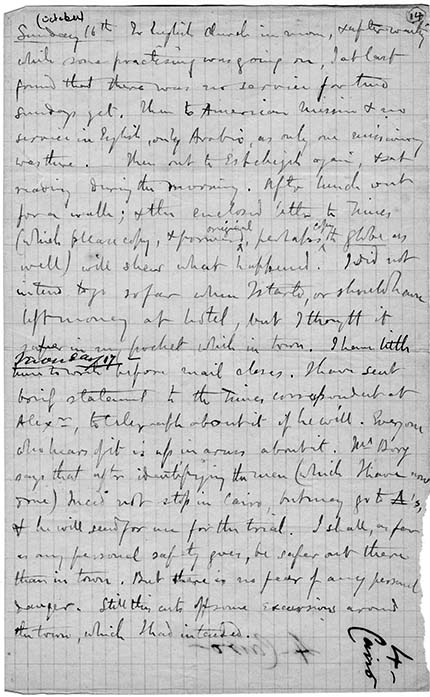 (October) 14
Sunday 16th To English church in morn, & after waiting
which some practising was going on, I at last
found that there was no service for two
Sundays yet. Then to American Mission & no
service in English, only Arabic, as only one missionary
was there. Then out to Esbekiyeh again, & sat
reading during the morning. After lunch went
for a walk; & the enclosed letter to Times
(which please copy, & forward original, perhaps copy to Globe as
well) will shew what happened. I did not
intend to go so far when I started, or should have
left money at hotel, but I thought it
safer in my pocket which in town. I have little
Monday 17 –
time to write before mail closes. I have sent
brief statement to the Times correspondent at
Alexn, to telegraph about it if he will. Everyone
who hears of it is up in arms about it. Mr Borg
says that after identifying the men (which I have now
done) I need not stop in Cairo, but may go to 's,
& he will send for me for the trial. I shall, as far
as any personal safety goes, be safer out there
than in town. But there is no fear of any personal
danger. Still this cuts off some excursions around
the town, which I had intended.
4 –
Cairo